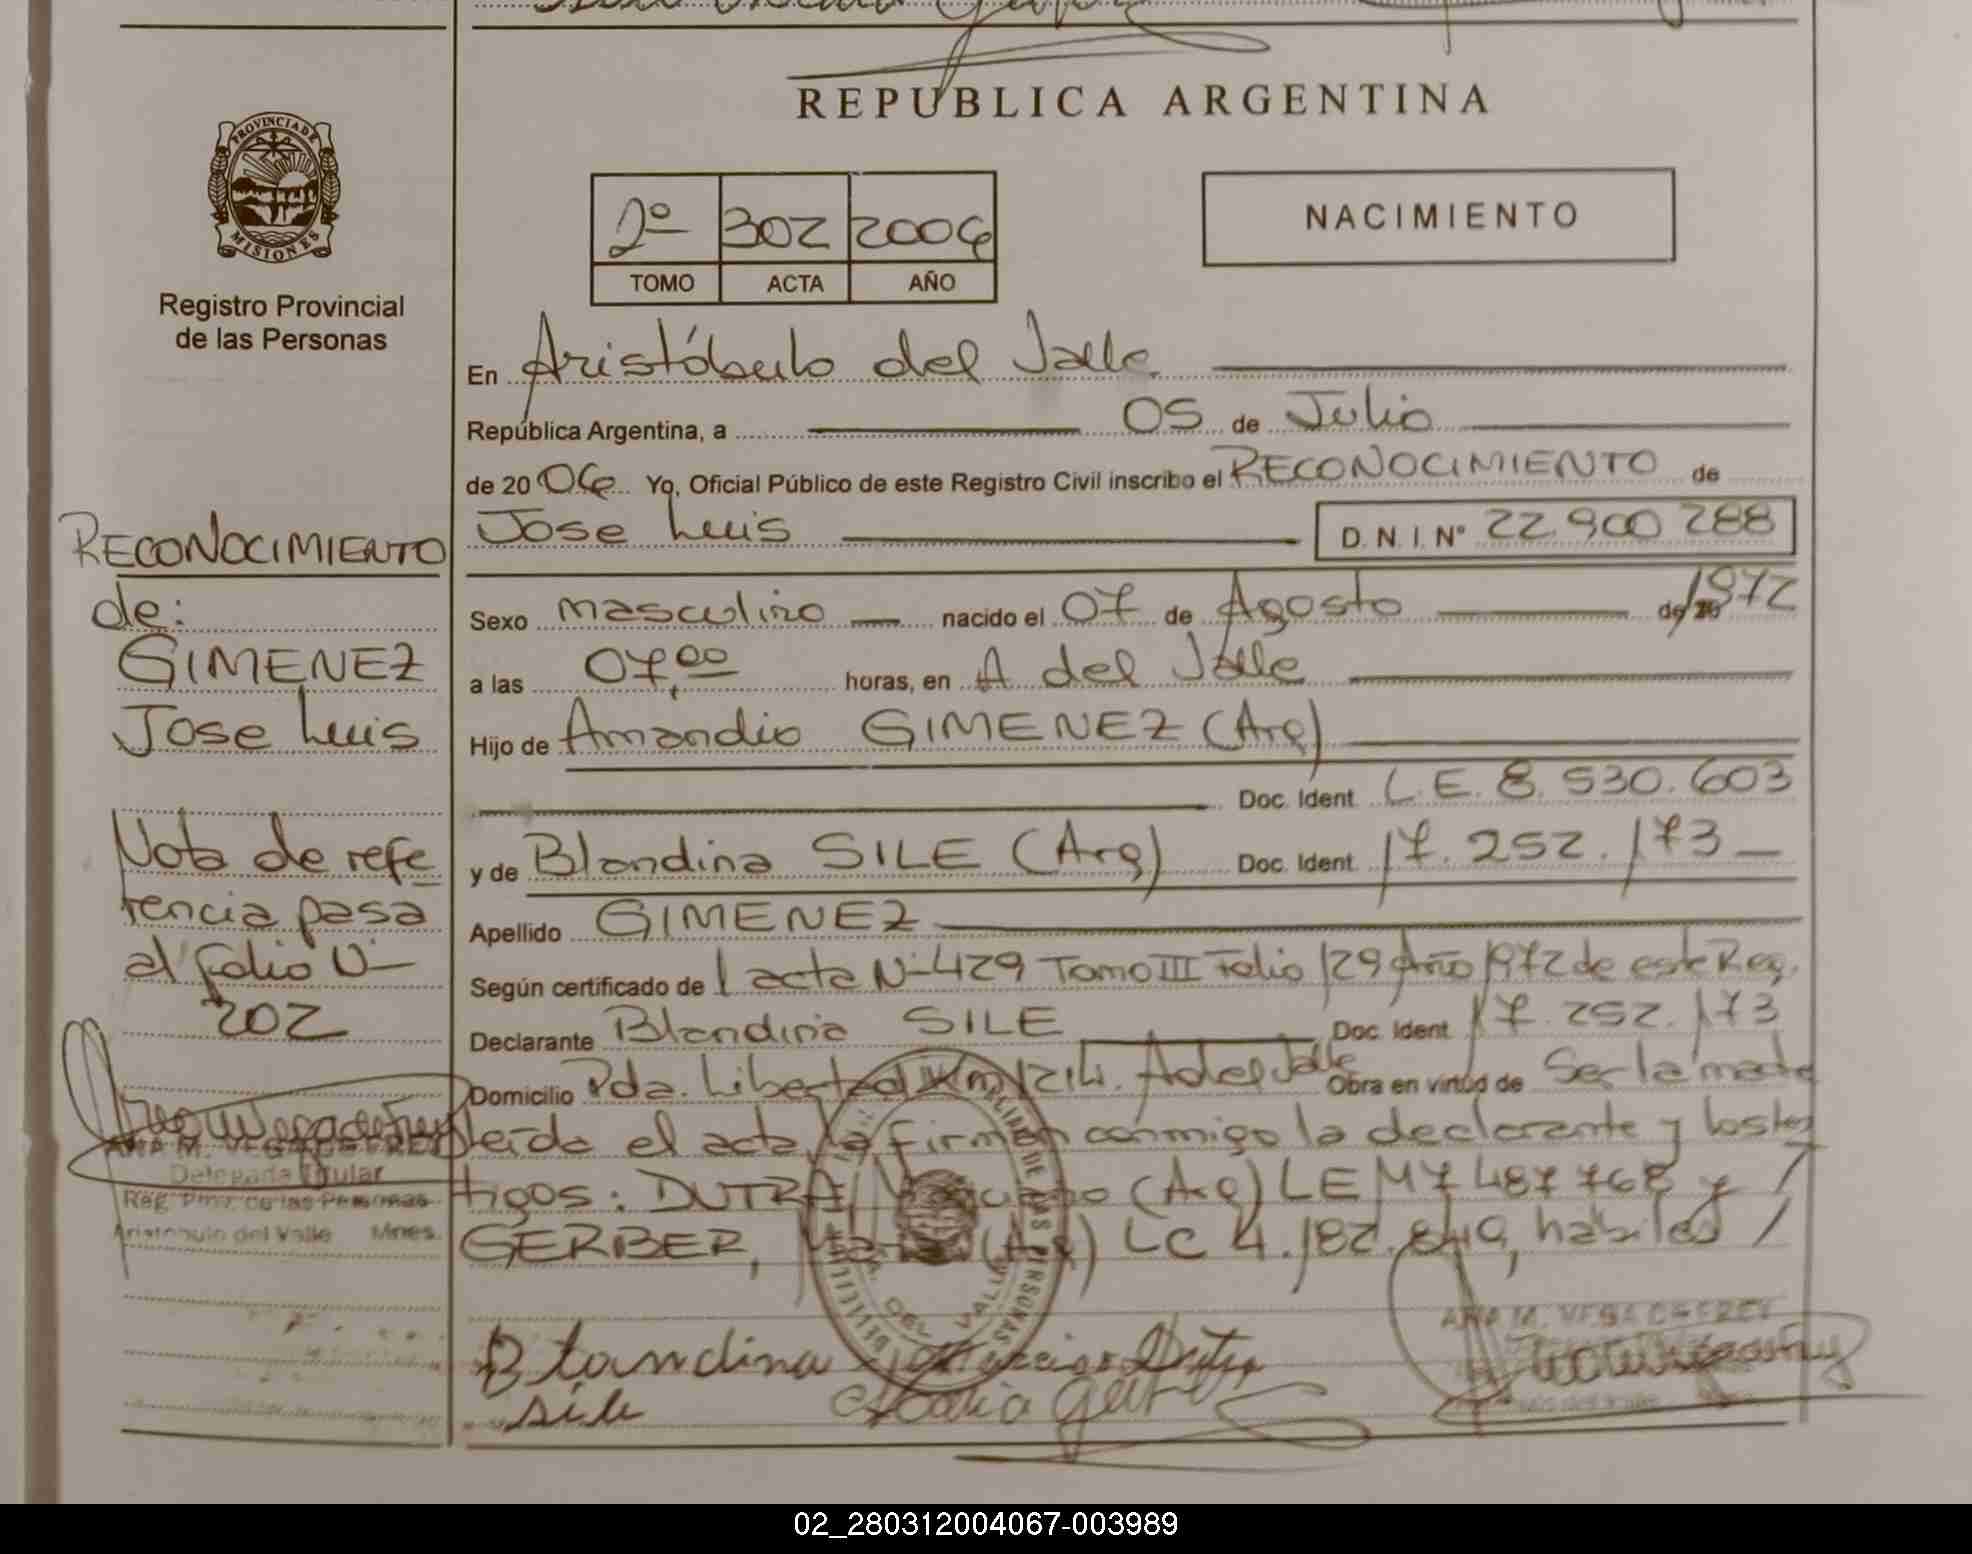 REPUBLICA ARGENTINA
PROVINCIA DE
MISIONES
Registro Provincial
de las Personas
2º 302 2006
TOMO ACTA AÑO
NACIMIENTO
En Aristóbulo del Valle
República Argentina, a 05 de Julio
de 2006 Yo, Oficial Público de este Registro Civil inscribo el RECONOCIMIENTO de
Jose Luis D.N.I. Nº 22.900 288
Sexo masculino nacido el 07 de Agosto de 1972
a las 07,00 horas, en A del Valle
Hijo de Amandio GIMENEZ (Arg)
Doc. Ident. L.E. 8.530.603
y de Blandina SILE (Arg) Doc. Ident. 17.252.173
Apellido GIMENEZ
Según certificado de acta Nº 429 Tomo III Folio 129 Año 1972 de este Reg.
Declarante Blandina SILE Doc. Ident. 17.252.173
Domicilio Pda. Libertad Km 1214. A del Valle Obra en virtud de Ser la madre
leída el acta, la firman conmigo la declarante y los tes
tigos: DUTRA, (Arg) LE M7 487 768 y
GERBER, (Arg) LC 4.182.849, habiles
Blandina
Sile
ANA M. VEGA
RECONOCIMIENTO
de:
GIMENEZ
Jose Luis
Nota de refe
rencia pasa
al folio Nº
202
ANA M. VEGA
Delegada Titular
Reg. Prov. de las Personas
Aristóbulo del Valle Mnes.
02_280312004067-003989